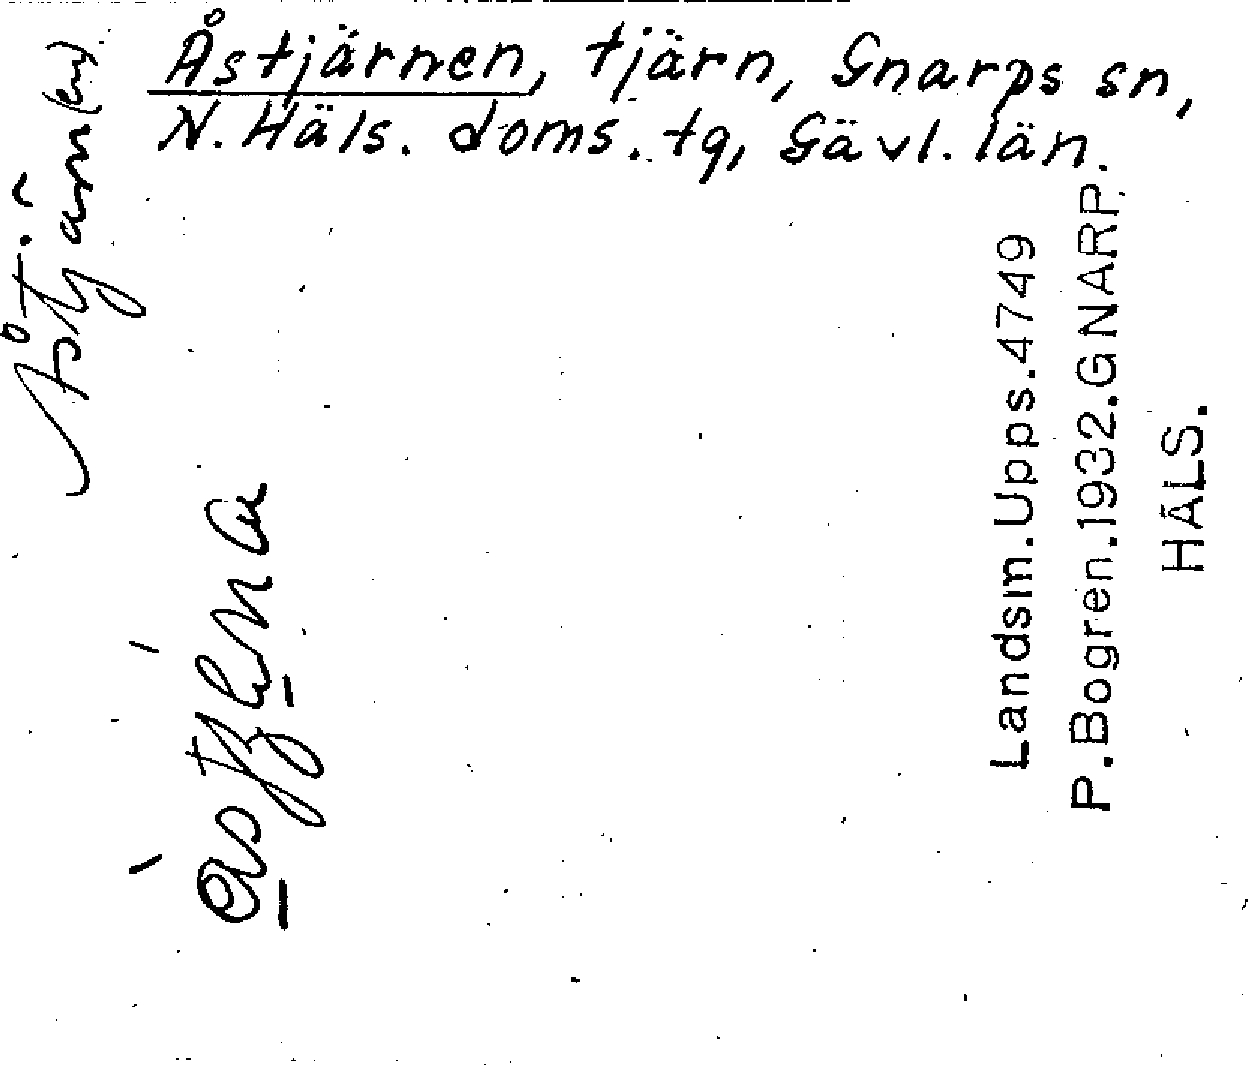 Åstjärnen, tjärn, Gnarps sn,
N. Häls. doms. tg, Gävl. län.
Landsm. Upps. 4749
P. Bogren. 1932. GNARP.
HÄLS.